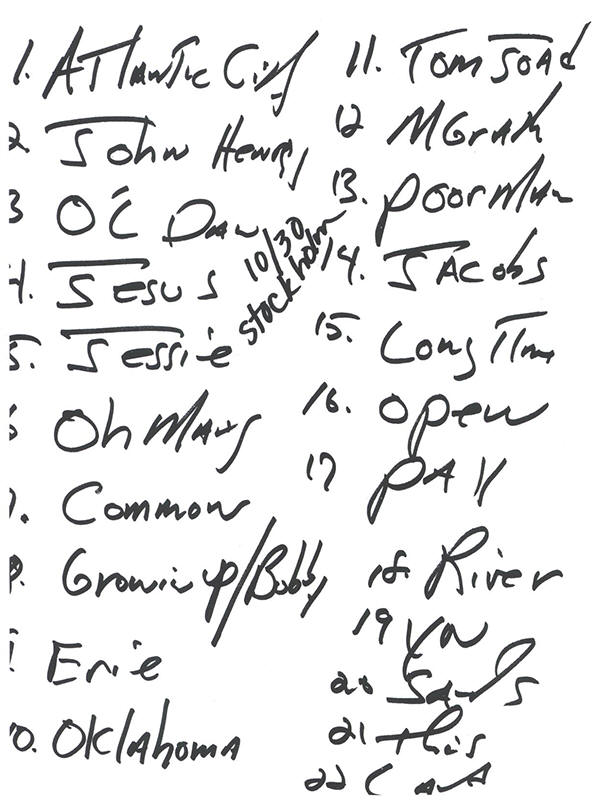 1. Atlantic City
2. John Henry
3 O'C Dan
4. Jesus
5. Jessie
6 Oh Mary
7. Common
8. Growin up/Bobby
9 Erie
10. Oklahoma
10/30
stockholm
11. Tom Joad
12 MGrath
13. Poor Man
14. Jacobs
15. Long Time
16. Open
17 PAY
18. River
19
20 Saints
21 This
22